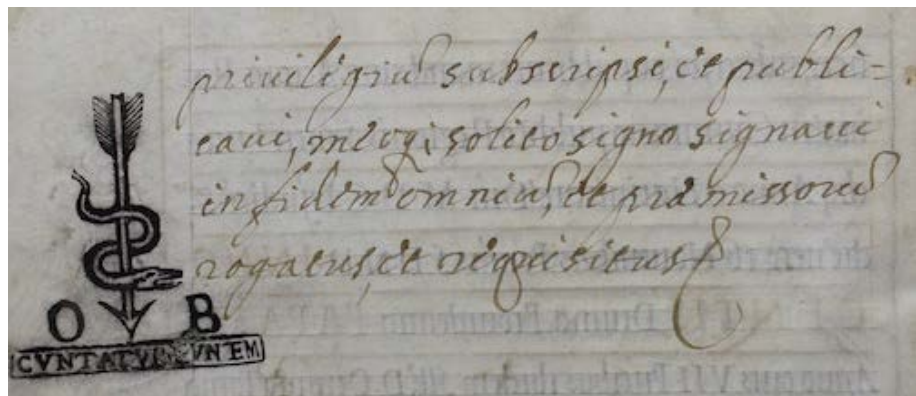 priuiligiũ subscripsi, et publi=
caui, meoq; solito signo signaui
in fidem omniũ, et præmissorũ
rogatus, et requisitus
O B